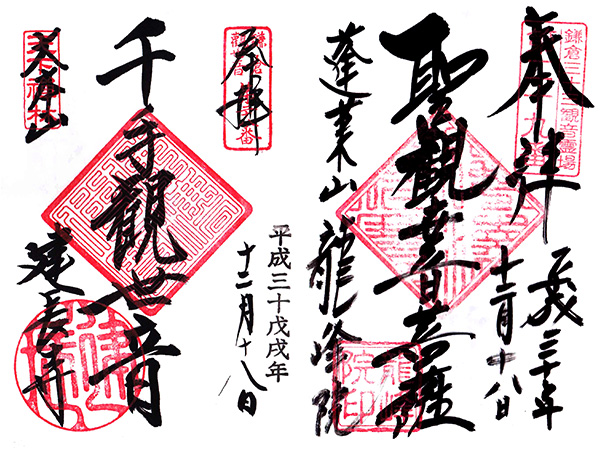 奉拝
平成三十年
十二月十八日
聖観世音菩薩
蓬莱山 龍峰院
鎌倉三十三観音霊場
龍峰院印
奉拝
平成三十戊戌年
十二月十八日
千手観世音
建長寺
天下禅林